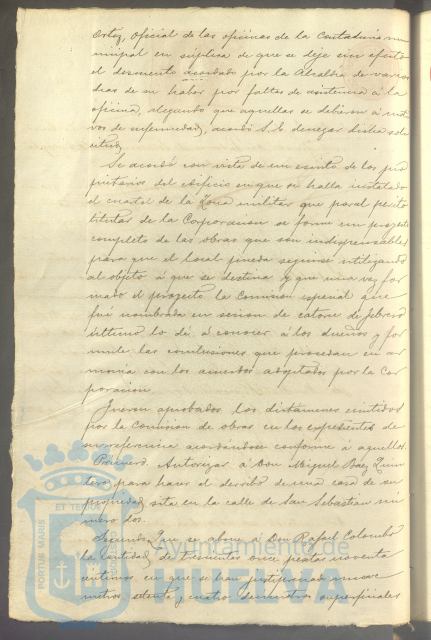 Ortiz, oficial de las oficinas de la Contaduria mu
nicipal en súplica de que se deje sin efecto
el descuento acordado por la Alcaldía de varios
dias de su haber por faltas de asistencia á la
oficina, alegando que aquellas se debieron á moti
vos de enfermedad, acordó S. E. denegar dicha soli
citud.
Se acordó con vista de un escrito de los pro
pietarios del edificio en que se halla instalado
el cuartel de la Zona militar que por el perito
titular de la Corporacion se forme un proyecto
completo de las obras que son indispensables
para que el local pueda seguirse utilizando
al objeto á que se destina y que una vez for
mado el proyecto la Comision especial que
fué nombrada en sesion de catorce de febrero
último lo dé á conocer á los dueños y for
mule las conclusiones que procedan en ar
monia con los acuerdos adoptados por la Cor
poracion
Fueron aprobados los dictámenes emitidos
por la Comision de obras en los expedientes de
su referencia acordándose conforme á aquellos.
Primero. Autorizar á Don Miguel Baez Quin
tero para hacer el derribo de una casa de su
propiedad, sita en la calle de San Sebastian nú
mero dos.
Segundo. Que se abone á Don Rafael Colombo
la cantidad de trescientas once pesetas noventa
centimos en que se han justipreciado nueve
metros setenta y cuatro decimetros superficiales
Ayuntamiento de
HUELVA
PORTUS MARIS
ET TERRAE